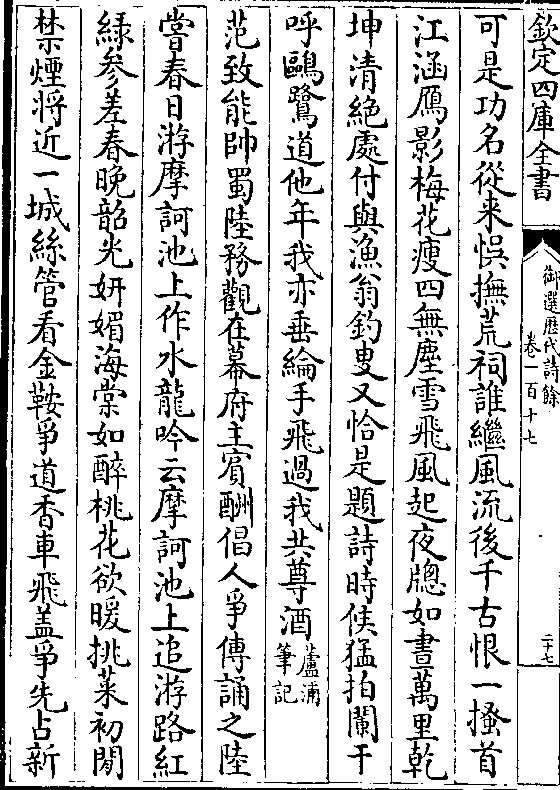 欽定四庫全書
御選歷代詩餘
卷一百十七
二十七
可是功名從来悞撫荒祠誰繼風流後千古恨一搔首
江涵鴈影梅花瘦四無塵雪飛風起夜牕如晝萬里乾
坤清絶處付與漁翁釣叟又恰是題詩時候猛拍闌干
呼鷗鷺道他年我亦垂綸手飛過我共尊酒蘆浦筆記
范致能帥蜀陸務觀在幕府主賓酬倡人爭傳誦之陸
嘗春日游摩訶池上作水龍吟云摩訶池上追游路紅
緑参差春晚韶光妍媚海棠如醉桃花欲暖挑菜初閒
禁煙將近一城絲管看金鞍爭道香車飛盖爭先占新